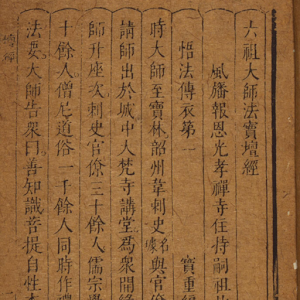 六祖大師法寶壇經
風旛報恩光孝禪寺住持嗣祖
悟法傳衣第一 寶重
時大師至寶林韶州韋刺史名璩與官僚
請師出於城中大梵寺講堂為眾開緣
師升座次刺史官僚三十餘人儒宗學
十餘人僧尼道俗一千餘人同時作禮
法要大師告眾曰善知識菩提自性本
壇經